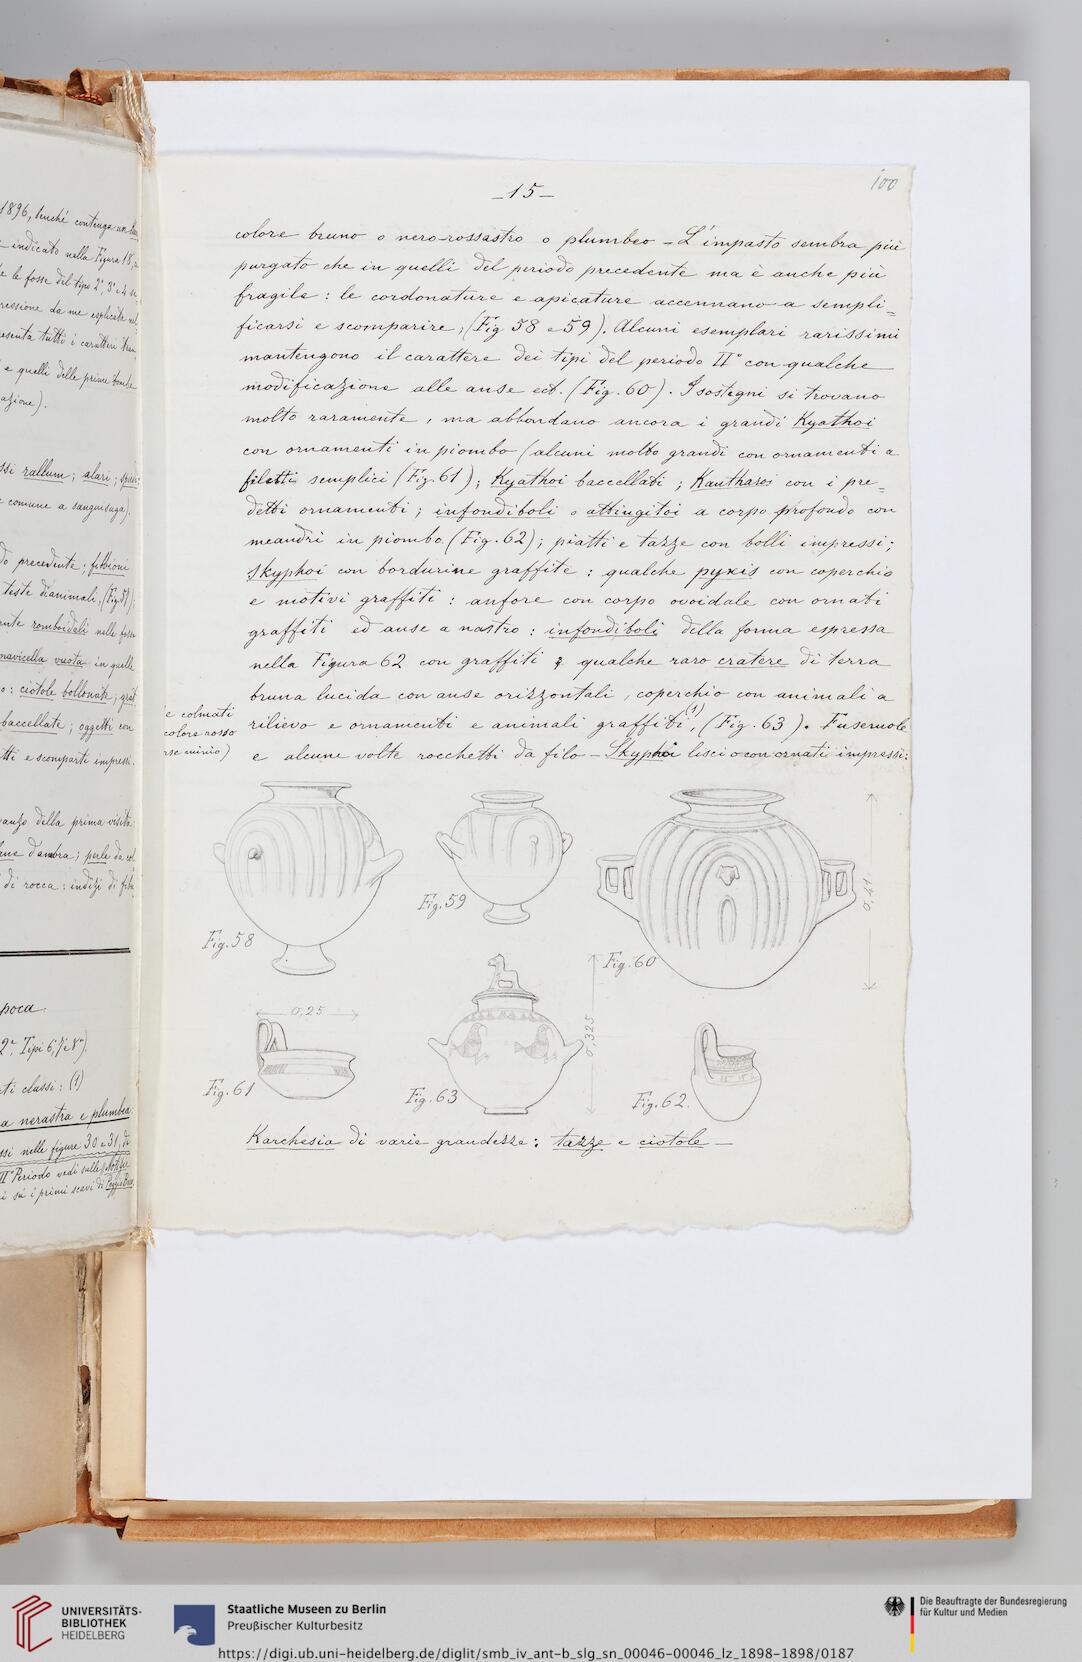 1896, benché contenga un
indicato nella Figura 18,
le fosse del tipo 2°, 3° e 4
pressione da me esplicata nel
presenta tutti i caratteri
e quelli delle prime tombe
azione).
ssi rallum; alari; spiedi
comune a sanguisuga).
do precedente; fibbioni
teste di animali, (Fig. 57);
romboidali nelle fosse
navicella vuota in quelle
o: ciotole bollonate;
baccellate; oggetti con
tti e scomparti impressi.
avanzo della prima visita
d'ambra; perle da
di rocca: indizi di
poca.
2°, Tipi 6°, 7° e 8°).
ti classi: (1)
a nerastra e plumbea
ssi nelle figure 30 e 31,
II° Periodo vedi sulle Notizie
i su i primi scavi di Poggio Buco
100
-15-
colore bruno o nero-rossastro o plumbeo - L'impasto sembra più
purgato che in quelli del periodo precedente ma è anche più
fragile: le cordonature e apicature accennano a sempli=
ficarsi e scomparire, (Fig 58 e 59). Alcuni esemplari rarissimi
mantengono il carattere dei tipi del periodo II° con qualche
modificazione alle anse ect. (Fig. 60). I sostegni si trovano
molto raramente, ma abbondano ancora i grandi Kyathoi
con ornamenti in piombo (alcuni molto grandi con ornamenti a
filetti semplici (Fig. 61); Kyathoi baccellati; Kantharoi con i pre=
detti ornamenti; infondiboli o attingitoi a corpo profondo con
meandri in piombo (Fig. 62); piatti e tazze con bolli impressi;
Skyphoi con bordurine graffite: qualche pyxis con coperchio
e motivi graffiti: anfore con corpo ovoidale con ornati
graffiti ed anse a nastro: infondiboli della forma espressa
nella Figura 62 con graffiti e qualche raro cratere di terra
bruna lucida con anse orizzontali, coperchio con animali a
rilievo e ornamenti e animali graffiti (1), (Fig. 63). Fuseruole
e alcune volte rocchetti da filo - Skyphoi lisci o con ornati impressi:
e colmati
colore rosso
minio)
Fig. 58
Fig. 59
Fig. 60
0,41.
0,25
Fig. 61
Fig. 63
0,325
Fig. 62.
Karchesia di varie grandezze; tazze e ciotole -
UNIVERSITÄTS-
BIBLIOTHEK
HEIDELBERG
Staatliche Museen zu Berlin
Preußischer Kulturbesitz
Die Beauftragte der Bundesregierung
für Kultur und Medien
https://digi.ub.uni-heidelberg.de/diglit/smb_iv_ant-b_slg_sn_00046-00046_lz_1898-1898/0187